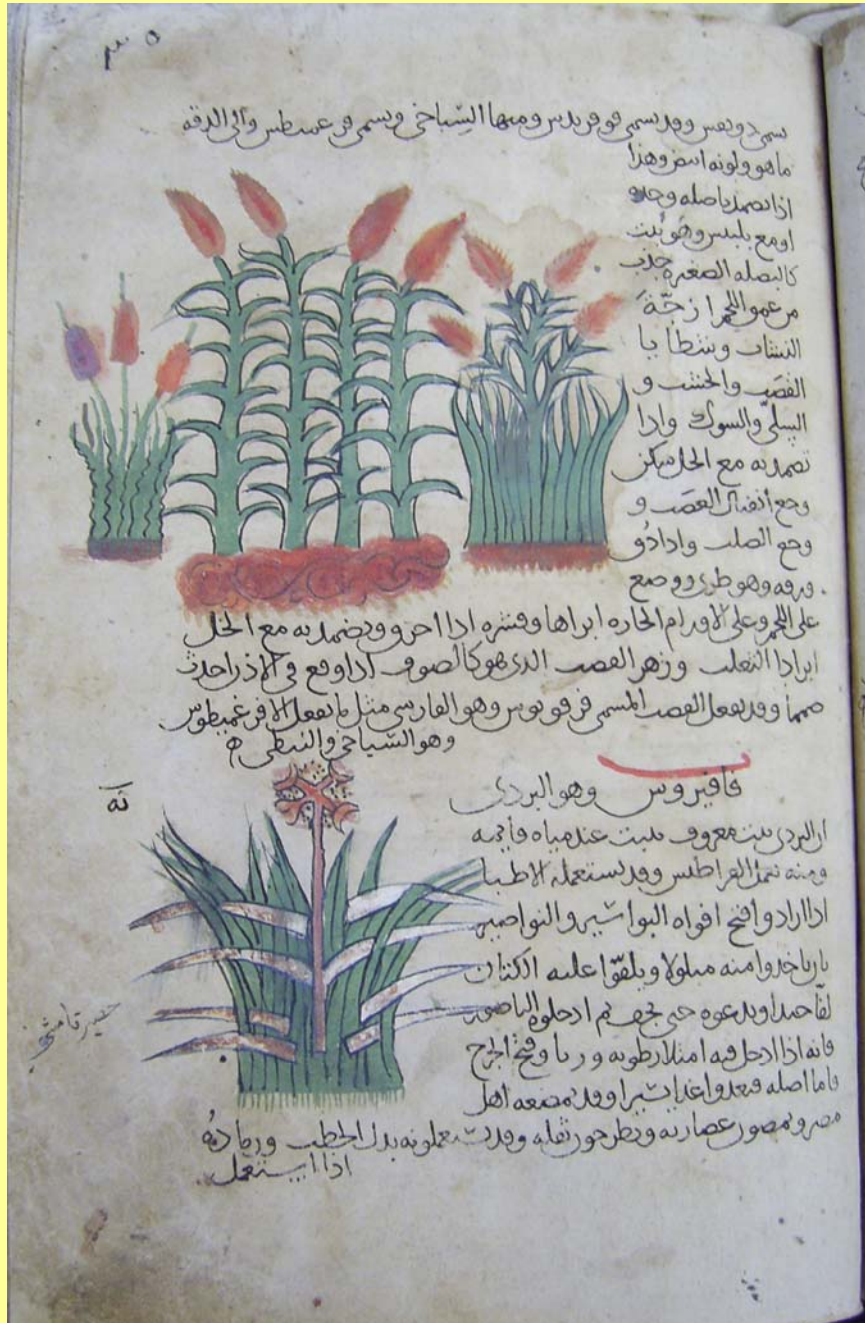 يسمى دونقس وقد يسمى قوفريدس ومنها السباخى ويسمى والى الدقه
ما هو ولونه ابيض وهذا
اذا تضمد باصله وحده
او مع بلبس وهو نبت
كالبصله الصغيره جذب
من عمق اللحم ازجّة
النشاب وشظايا
القصب والخشب و
السلّى والشوك واذا
تضمد به مع الخل سكن
وجع العصب و
وجع الصلب واذا دُق
ورقه وهو طرى ووضع
على اللحم وعلى الاورام الحاره ابراها وقشره اذا احرق ويضمد به مع الخل
ابرا دا الثعلب وزهر القصب الذى هو كالصوف اذا وقع فى الاذن احدث
صمما وقد يفعل القصب المسمى وهو الفارسى مثل ما يفعل
وهو السباخى والنبطى
فافيروس وهو البردى
ان البردى نبت معروف ينبت عند مياه قائمه
ومنه تعمل القراطيس وقد يستعمله الاطبا
اذا ارادوا فتح افواه البواسير والنواصير
بان ياخذوا منه مبلولا ويلفّوا عليه الكتان
لفّا جيدا ويدعوه حتى يجف ثم ادخلوه الناصور
فانه اذا ادخل فيه امتلا رطوبه وربا وفتح الجرح
فاما اصله فيغذوا غذا يسيرا وقد يمضغه اهل
مصر ويمصون عصارته ويطرحون ثفله وقد يستعملونه بدل الحطب ورمادهُ
اذا استعمل